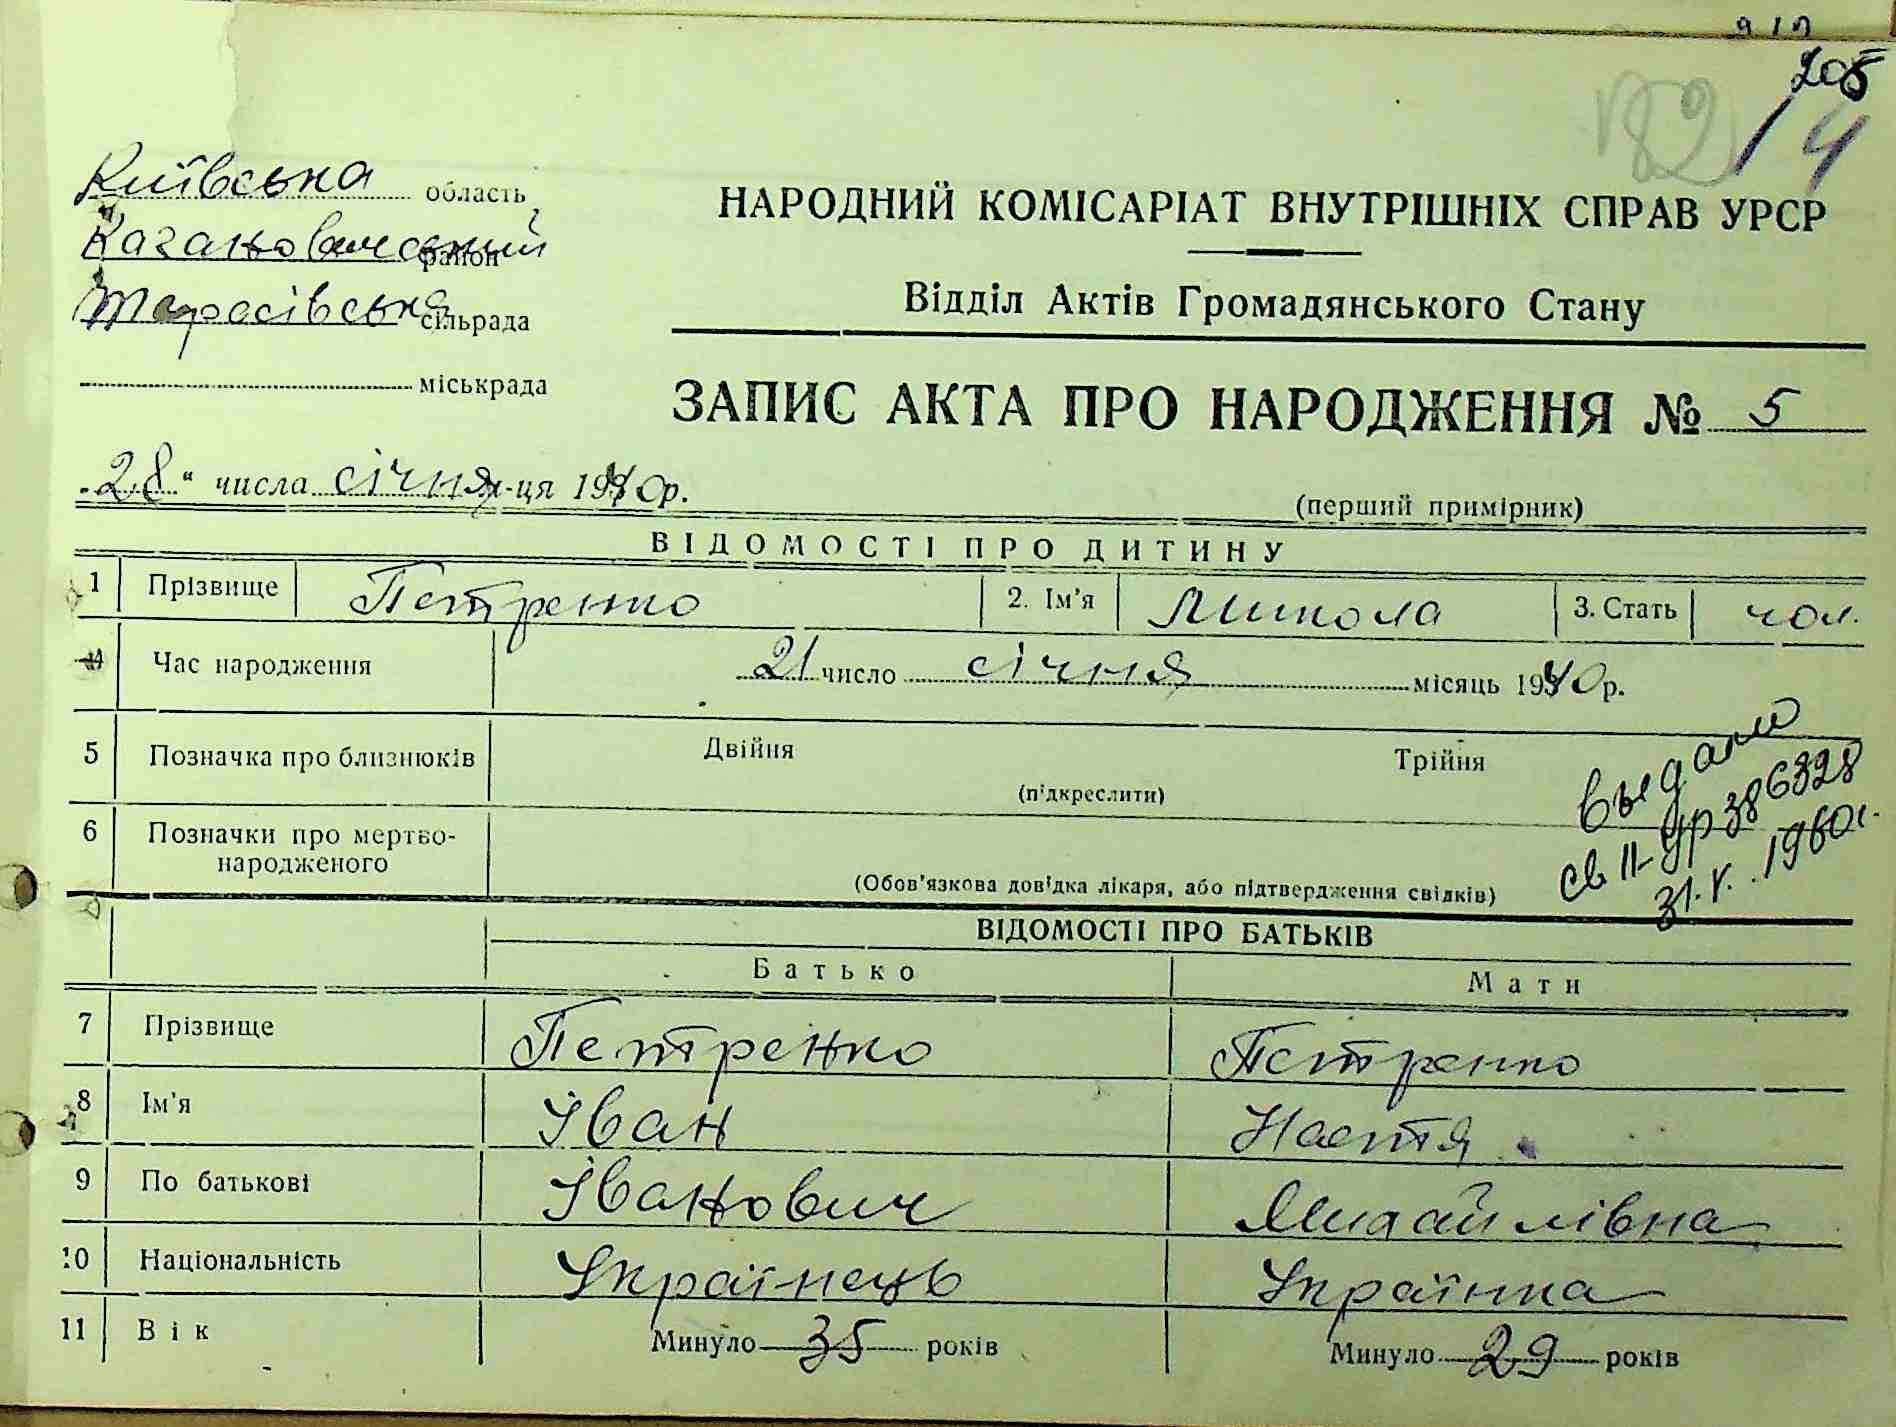 205
182 / 4
Київська область
Кагановичський район
Тарасівська сільрада
міськрада
НАРОДНИЙ КОМІСАРІАТ ВНУТРІШНІХ СПРАВ УРСР
Відділ Актів Громадянського Стану
ЗАПИС АКТА ПРО НАРОДЖЕННЯ № 5
„28“ числа січня м-ця 1940р.
(перший примірник)
ВІДОМОСТІ ПРО ДИТИНУ
1 Прізвище Петренко 2. Ім'я Микола 3. Стать чол.
4 Час народження 21 число січня місяць 1940р.
5 Позначка про близнюків Двійня Трійня
(підкреслити)
6 Позначки про мертво-
народженого
(Обов'язкова довідка лікаря, або підтвердження свідків)
Выдано
св II-УР 386328
31.V.1960г.
ВІДОМОСТІ ПРО БАТЬКІВ
Батько Мати
7 Прізвище Петренко Петренко
8 Ім'я Іван Настя
9 По батькові Іванович Михайлівна
10 Національність Українець Українка
11 Вік Минуло 35 років Минуло 29 років